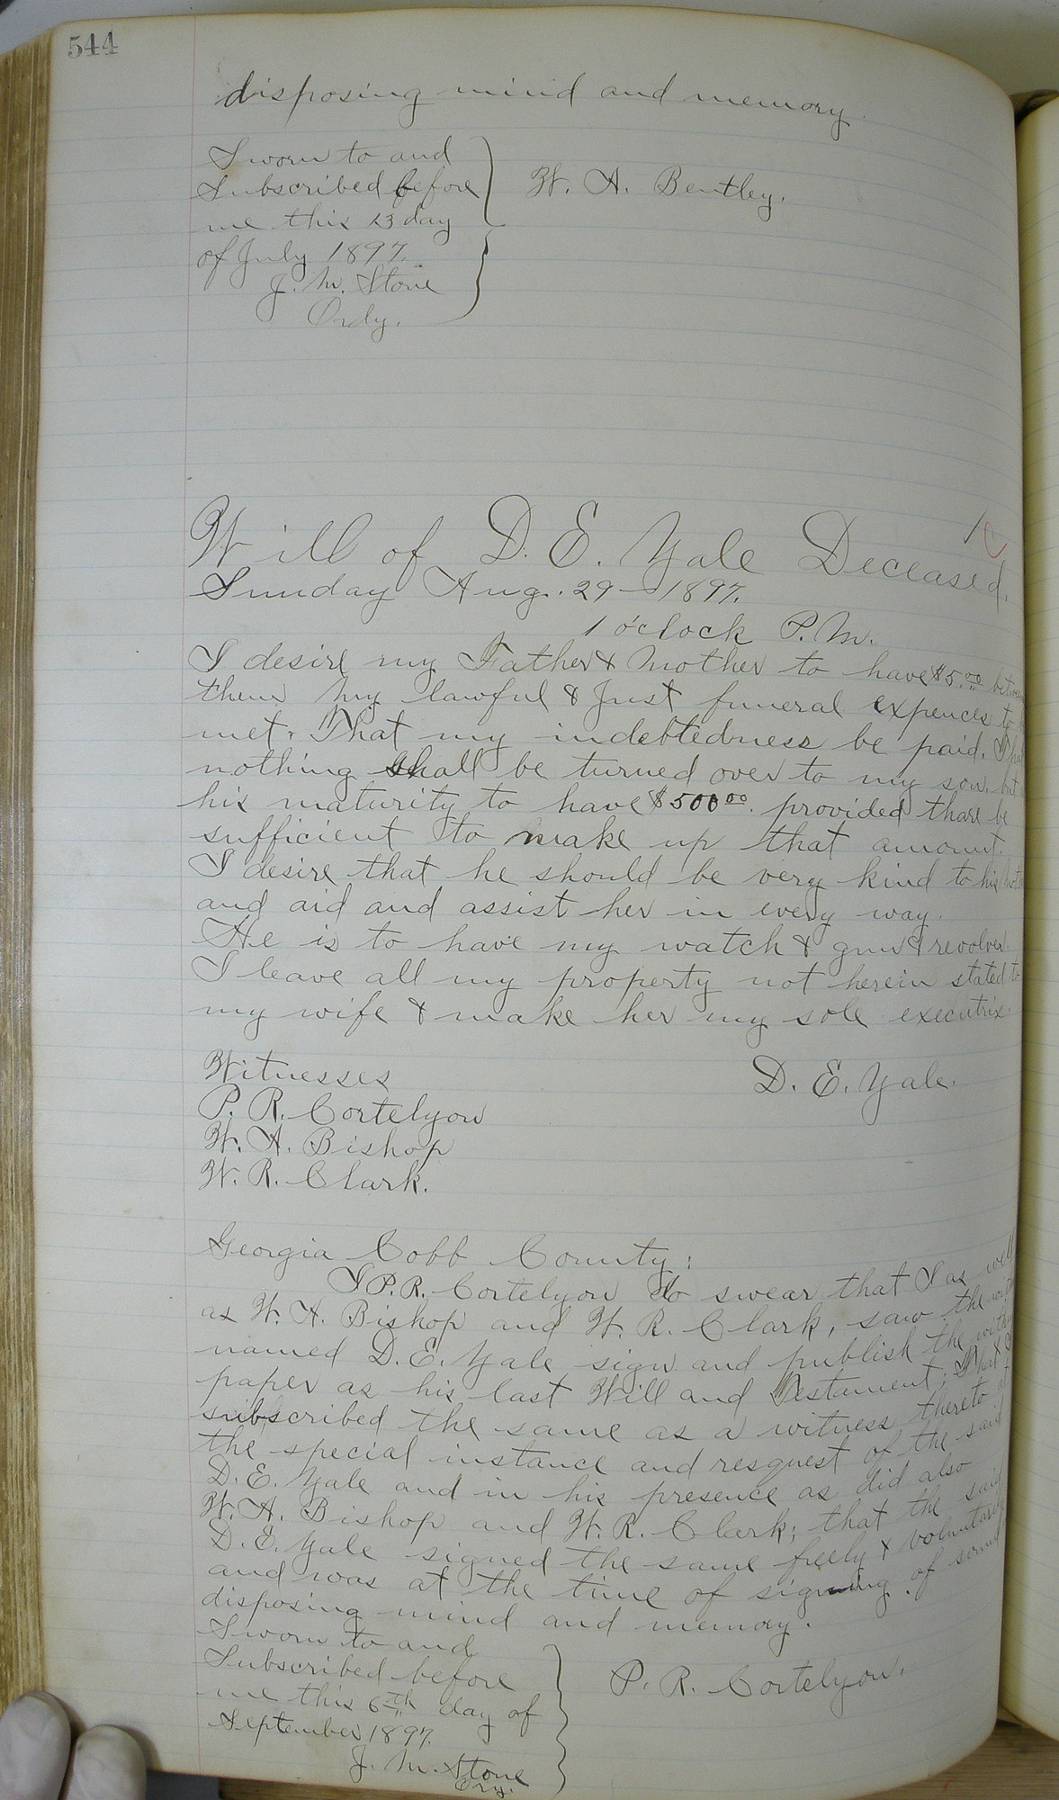 544
disposing mind and memory.
Sworn to and
Subscribed before
me this 23 day
of July 1897.
J. M. Stone
Ordy.
W. A. Bentley.
Will of D. E. Yale Deceased.
Sunday Aug. 29 - 1897.
1 o'clock P. M.
I desire my Father & Mother to have $5.00 between
them My lawful & Just funeral expences to
met. That my indebtedness be paid.
nothing shall be turned over to my son, but
his maturity to have $500.00. provided thare be
sufficient to make up that amount.
I desire that he should be very kind to his
and aid and assist her in every way.
He is to have my watch & gun & revolver.
I leave all my property not herein stated to
my wife & make her my sole executrix.
D. E. Yale.
Witnesses
P. R. Cortelyou
W. A. Bishop
W. R. Clark.
Georgia Cobb County:
I P. R. Cortelyou do swear that I as well
as W. A. Bishop and W. R. Clark, saw the
named D. E. Yale sign and publish the within
paper as his last Will and Testament; That I
subscribed the same as a witness thereto at
the special instance and resquest of the said
D. E. Yale and in his presence as did also
W. A. Bishop and W. R. Clark; that the said
D. E. Yale signed the same freely & voluntarily
and was at the time of signing of sound
disposing mind and memory.
Sworn to and
Subscribed before
me this 6th day of
September 1897.
J. M. Stone
Ordy.
P. R. Cortelyou.